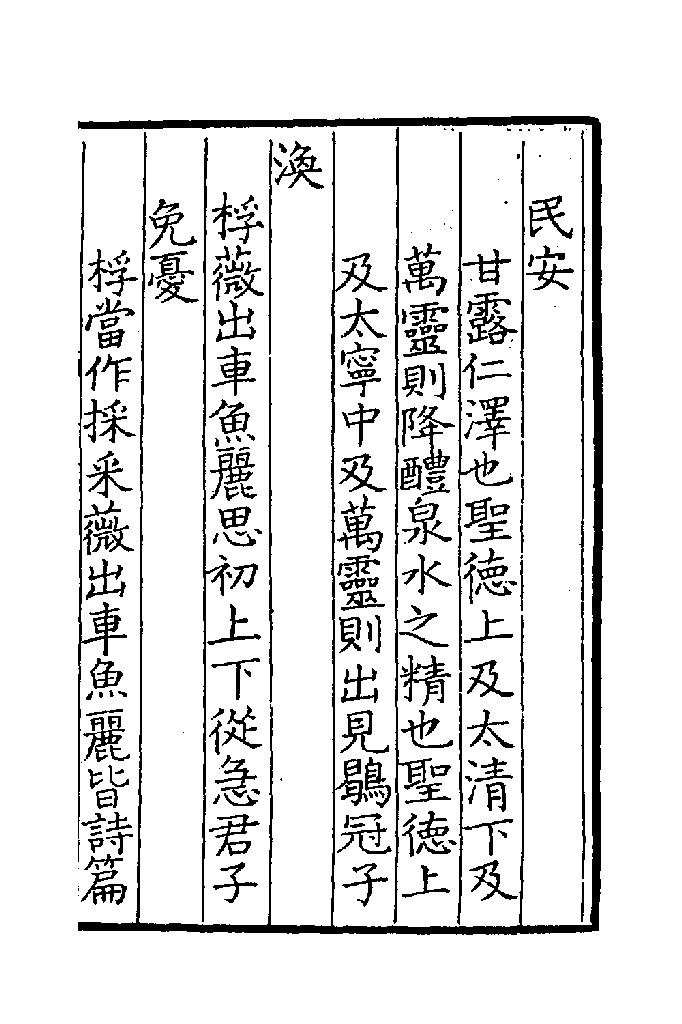 民安
甘露仁澤也聖德上及太清下及
萬靈則降醴泉水之精也聖德上
及太寧中及萬靈則出見鶡冠子
渙
桴薇出車魚麗思初上下從急君子
免憂
桴當作採采薇出車魚麗皆詩篇